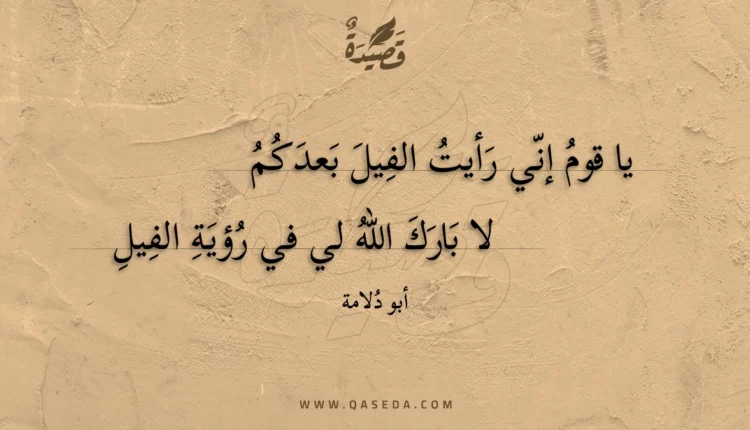 قَصِيْدَةٌ
يا قومُ إنّي رَأيتُ الفِيلَ بَعدَكُمُ
لا بَارَكَ اللهُ لي في رُؤيَةِ الفِيلِ
أبو دُلامة
WWW.QASEDA.COM